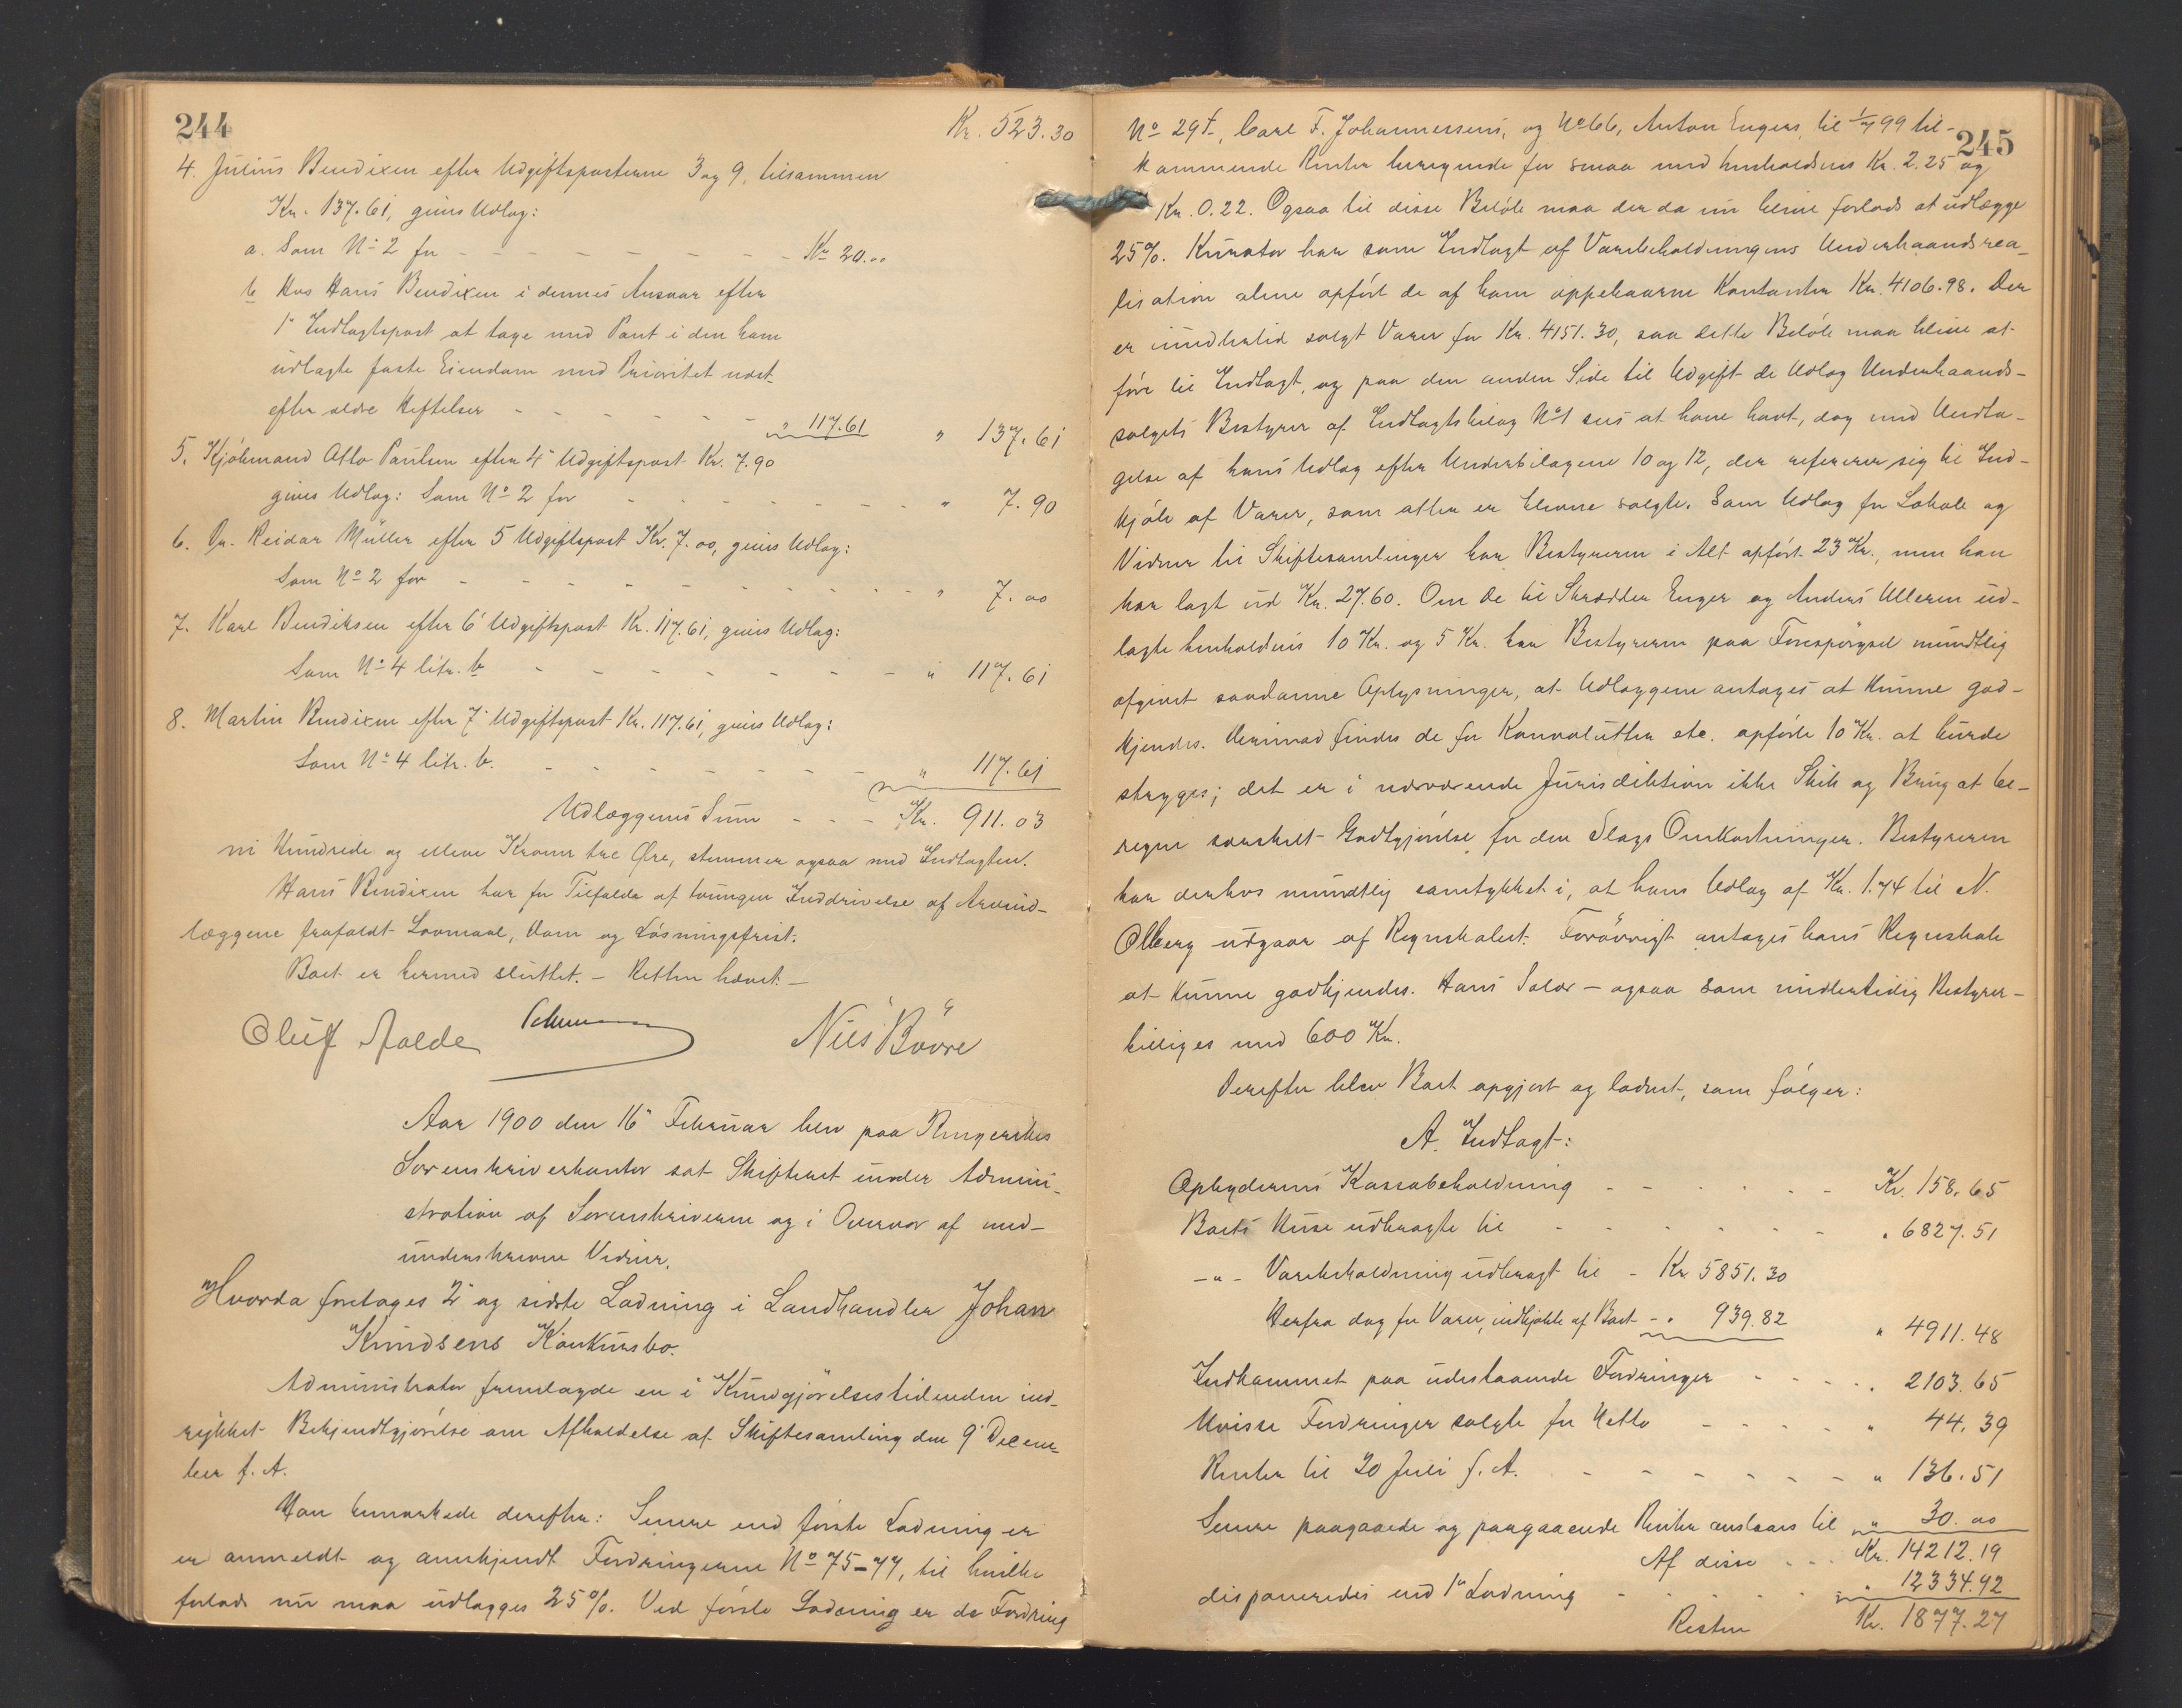 244
Kr. 523.30
4. Julius Bendixen efter Udgiftsposterne 3 og 9, tilsammen
Kr. 137.61, gives Udlæg:
a. Som No 2 for - - - - - - - - Kr. 20.00
b. Hos Hans Bendixen i dennes Ansvar efter
1ste Indtægtspost at tage med Pant i den ham
udlagte faste Eiendom med Prioritet næst
efter ældre Heftelser - - - - - - " 117.61 " 137.61
5. Kjøbmand Otto Paulsen efter 4" Udgiftspost Kr. 7.90
gives Udlæg: Som No 2 for - - - - - - " 7.90
6. Dr. Reidar Müller efter 5 Udgiftspost Kr. 7.00, gives Udlæg:
Som No 2 for - - - - - - - - - " 7.00
7. Karl Bendiksen efter 6" Udgiftspost Kr. 117.61, gives Udlæg:
Som No 4 litr. b - - - - - - - " 117.61
8. Martin Bendixen efter 7" Udgiftspost Kr. 117.61, gives Udlæg:
Som No 4 litr. b. - - - - - - " 117.61
Udlæggenes Sum - - - Kr. 911.03
ni Hundrede og elleve Kroner tre Øre, stemmer ogsaa med Indtægten.
Hans Bendixen har for Tilfælde af tvungen Inddrivelse af Arveud-
læggene frafaldt Lovmaal, Dom og Løsningsfrist.
Boet er hermed sluttet. - Retten hævet. -
Oluf Aalde Nils Bövre
Aar 1900 den 16" Februar blev paa Ringerikes
Sorenskriverkontor sat Skifteret under Admini-
stration af Sorenskriveren og i Overvær af med-
underskrevne Vidner.
Hvorda foretoges 2" og sidste Lodning i Landhandler Johan
Knudsens Konkursbo.
Administrator fremlagde en i Kundgjørelsestidenden ind-
rykket Bekjendtgjørelse om Afholdelse af Skiftesamling den 9" Decem-
ber f. A.
Man bemærkede derefter: Senere end første Lodning er
er anmeldt og anerkjendt Fordringerne No 75-77, til hvilke
forlods nu maa udlægges 25 %. Ved første Lodning er de Fordring
245
No 29 f, Carl F. Johannessens, og No 66, Anton Engers, til 1/7 99 til-
kommende Renter beregnede for smaa med henholdsvis Kr. 2.25 og
Kr. 0.22. Ogsaa til disse Beløb maa der da nu blive forlods at udlægge
25%. Kurator har som Indtægt af Varebeholdningens Underhaandsrea-
lisation alene opført de af ham oppebaarne Kontanter Kr. 4106.98. Der
er imidlertid solgt Varer for Kr. 4151.30, saa dette Beløb maa blive at
føre til Indtægt, og paa den anden Side til Udgift de Udlæg Underhaands-
salgets Bestyrer af Indtægtsbilag No 1 sees at have havt, dog med Undta-
gelse af hans Udlæg efter Underbilagene 10 og 12, der refererer sig til Ind-
kjøb af Varer, som atter er blevne solgte. Som Udlæg for Lokale og
Vidner til Skiftesamlinger har Bestyreren i Alt opført 23 Kr., men han
har lagt ud Kr. 27.60. Om de til Skrædder Enger og Anders Ulleren ud-
lagte henholdsvis 10 Kr. og 5 Kr. har Bestyreren paa Forespørgsel mundtlig
afgivet saadanne Oplysninger, at Udlæggene antages at kunne god-
kjendes. Derimod findes de for Konvolutter etc. opførte 10 Kr. at burde
stryges; det er i nærværende Jurisdiktion ikke Skik og Brug at be-
regne særskilt Godtgjørelse for den Slags Omkostninger. Bestyreren
har derhos mundtlig samtykket i, at hans Udlæg af Kr. 1.74 til N.
Olberg udgaar af Regnskabet. Forøvrigt antages hans Regnskab
at kunne godkjendes. Hans Salær - ogsaa som midlertidig Bestyrer -
billiges med 600 Kr.
Derefter blev Boet opgjort og lodnet, som følger:
A. Indtægt:
Opbyderens Kassabeholdning - - - - - - Kr. 158.65
Boets Huse udbragte til - - - - - - " 6827.51
-"- Varebeholdning udbragt til - Kr. 5851.30
Herfra dog for Varer, indkjøbte af Boet - " 939.82 " 4911.48
Indkommet paa udestaaende Fordringer - - - - " 2103.65
Uvisse Fordringer solgte for Netto - - - - " 44.39
Renter til 20 Juli f. A. - - - - - - " 136.51
Senere paagaaede og paagaaende Renter anslaaes til " 30.00
Kr. 14212.19
Af disse - - -
disponeredes ved 1" Lodning - - - - - " 12334.92
Resten Kr. 1877.27